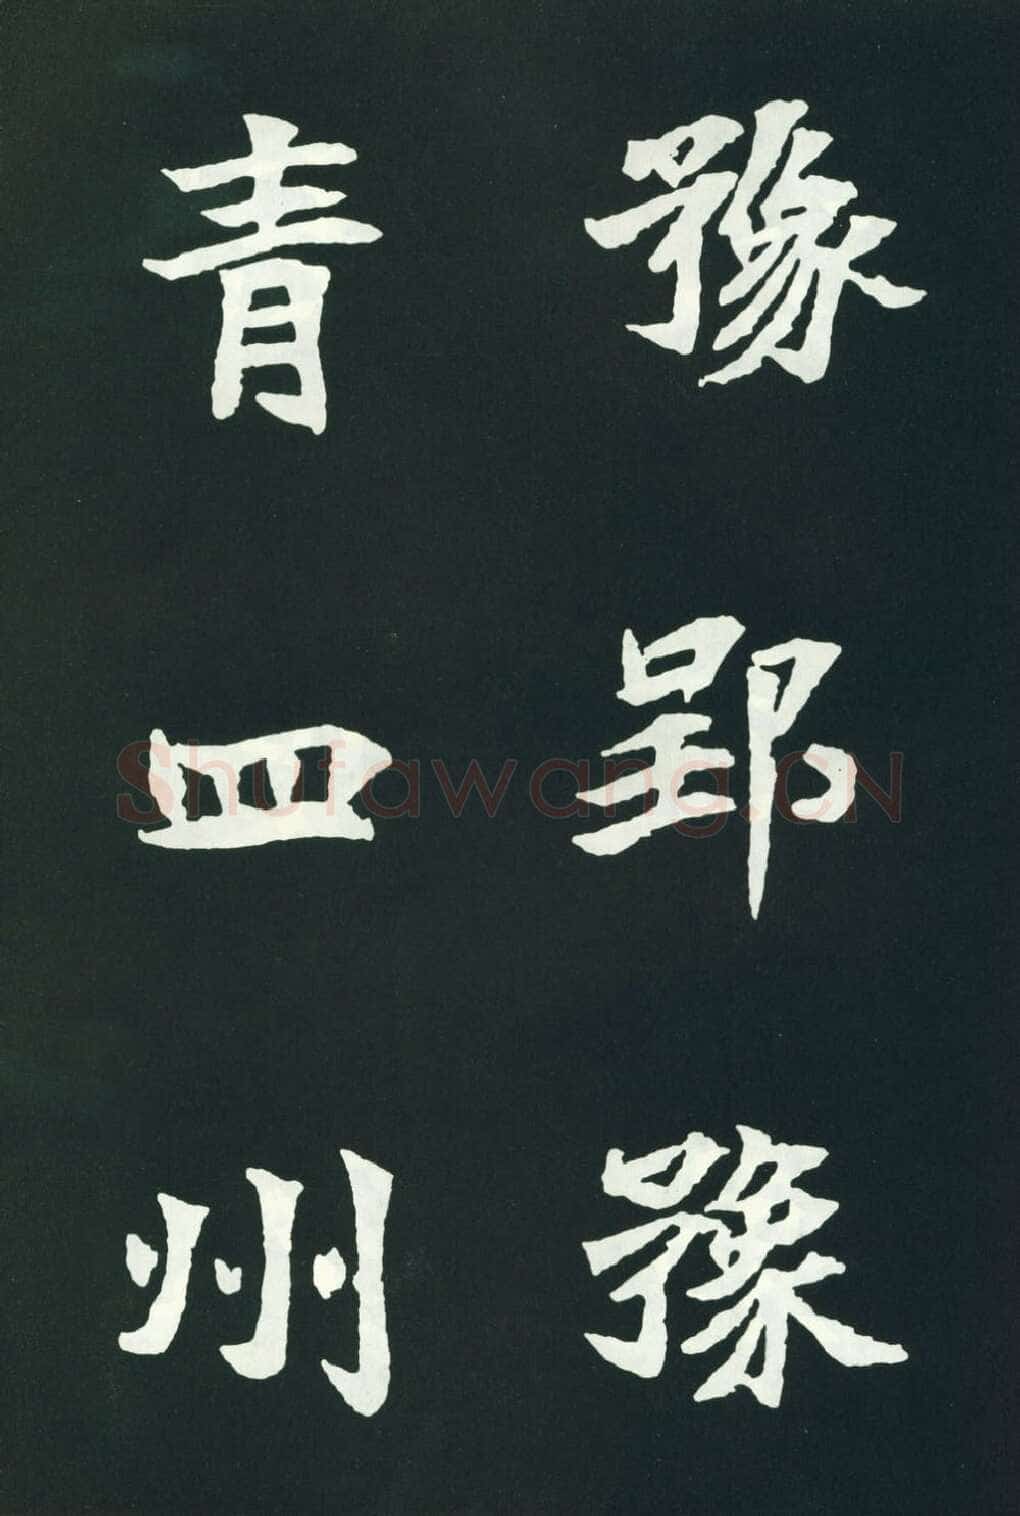 豫郢豫
青四州
Shufawang.CN